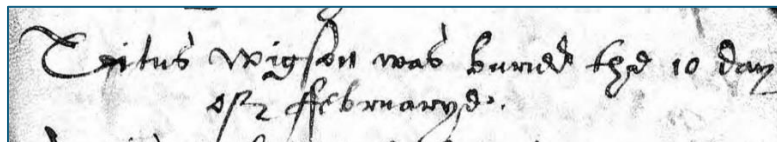 Titus Wigson was buried the 10 day
of ffebruarye.